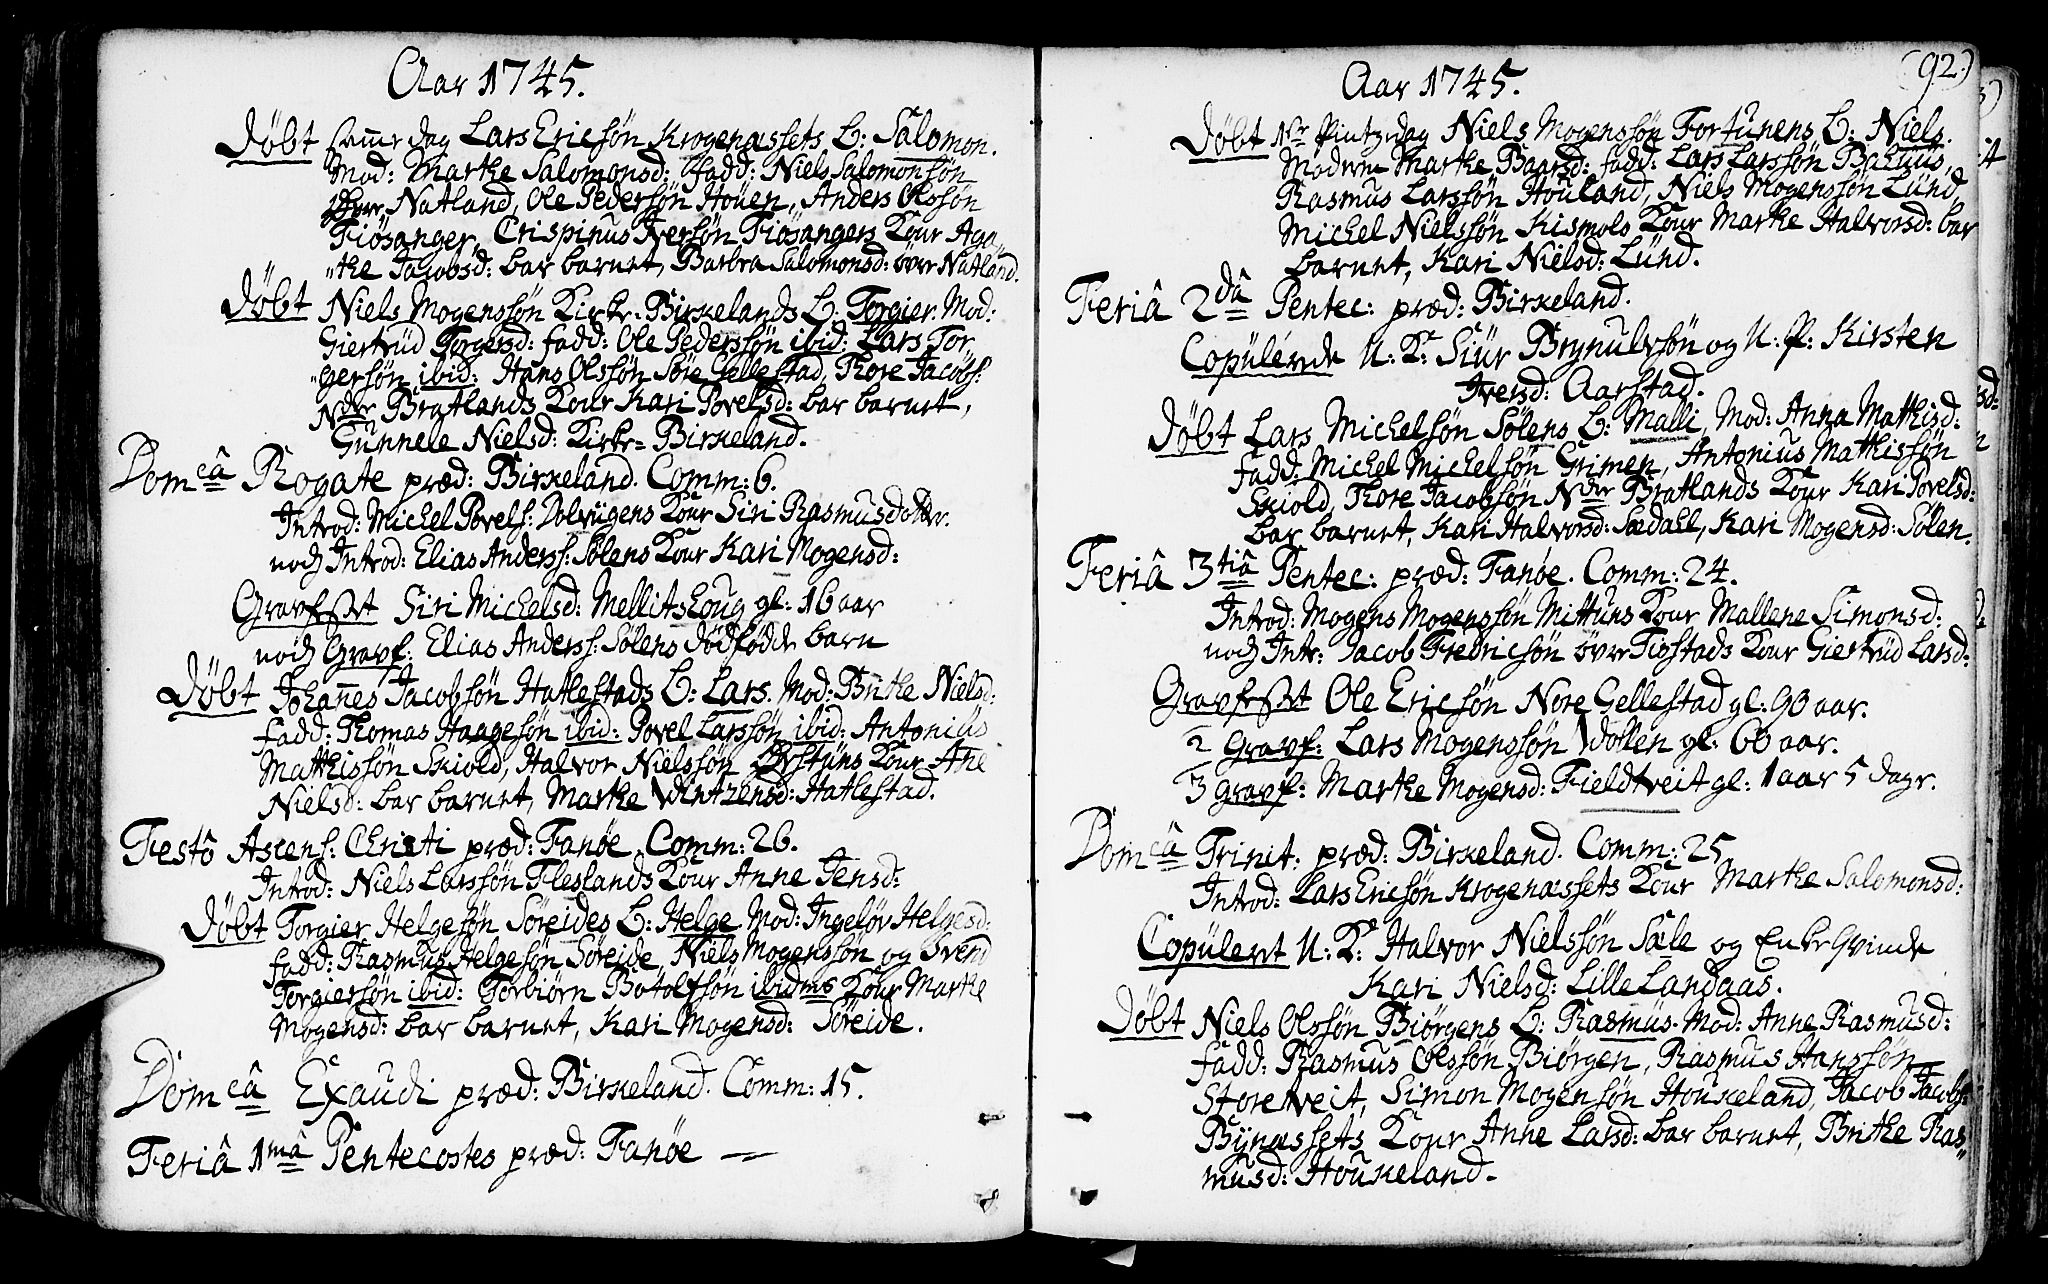 Aar 1745.
Døbt samme dag Lars Ericsøn Krogenæssets B: Salomon.
Mod: Marthe Salomonsd: Fadd: Niels Salomonsøn
Natland, Ole Pedersøn Houen, Anders Olssøn
Fiøsanger, Crispinus Iversøn Fiøsangers Kour Aga„
„the Jacobsd: bar barnet, Barbra Salomonsd: övre Natland.
Døbt Niels Mogenssøn Kirke-Birkelands B: Torgier. Mod:
Giertrüd Torgersd: fadd: Ole Pederssøn ibid: Lars Tor„
„gersøn ibid: Hans Olssøn Søre Gellestad, Thore Jacobs:
Nder Bratlands Kour Kari Povelsd: bar barnet,
Gunnele Nielsd: Kirke-Birkeland.
Domcâ Rogate præd: Birkeland. Comm: 6.
Introd: Michel Povels: Dolvügens Kour Siri Rasmusdotter.
noch Introd: Elias Anderss: Sølens Kour Kari Mogensd:
Gravfæst Siri Michelsd: Mellitshoug gl: 16 aar
noch Gravf: Elias Anderss: Sølens dødfødde barn
Døbt Johannes Jacobsøn Hatlestads B: Lars. Mod: Brithe Nielsd:
fadd: Thomas Haagesøn ibid: Povel Larssøn ibid: Antonius
Matthissøn Skiold, Halvor Nielssøn Øvstüns Kour Ane
Nielsd: bar barnet, Marthe Vintzensd: Hatlestad.
Festô Ascens: Christi præd: Fanøe. Comm: 26.
Introd: Niels Larssøn Fleslands Kour Anne Jensd:
Døbt Torgier Helgesøn Søreides B: Helge. Mod: Ingeløv Helgesd:
fadd: Rasmus Helgesøn Søreide, Niels Mogenssøn og Svend
Torgiersøn ibid: Torbiørn Botolfsøn ibidms Kour Marthe
Mogensd: bar barnet, Kari Mogensd: Søreide.
Domcâ Exaudi præd: Birkeland. Comm: 15.
Feriâ 1mâ Pentecostes præd: Fanøe
(92.)
Aar 1745.
Døbt 1ste Pintzedag Niels Mogenssøn Fortunens B: Niels.
Moderen Marthe Baarsd: fadd: Lars Larssøn Bahuus,
Rasmus Larssøn Houland, Niels Mogenssøn Lund,
Michel Nielssøn Kismols Kour Marthe Halvorsd: bar
barnet, Kari Nielsd: Lünd.
Feriâ 2dâ Pentec: præd: Birkeland.
Copulerede U: K: Siur Brynulvsøn og U: P: Kirsten
Iversd: Aarstad.
Døbt Lars Michelsøn Sølens B: Malli, Mod: Anna Mathisd:
fadd: Michel Michelsøn Grimen, Antonius Mathissøn
Skiold, Thore Jacobsøn Nder Bratlands Kour Kari Povelsd:
bar barnet, Kari Halvorsd: Sædahl, Kari Mogensd: Sølen.
Feriâ 3tiâ Pentec: præd: Fanøe. Comm: 24.
Introd: Mogens Mogenssøn Mittuns Kour Mallene Simonsd:
noch Intr: Jacob Fredricsøn övre Tipstads Kour Giertrüd Larsd:
Gravfæst Ole Ericsøn Nore Gellestad gl: 90 aar.
2 Gravf: Lars Mogenssøn Vollen gl: 60 aar.
3 gravf: Marthe Mogensd: Fieldtveit gl: 1 aar 5 dage.
Domcâ Trinit: præd: Birkeland. Comm: 25
Introd: Lars Ericsøn Krogenæssets Kour Marthe Salomonsd:
Copulert U: K: Halvor Nielssøn Sæle og Enke Qvinde
Kari Nielsd: Lille Landaas.
Døbt Niels Olssøn Biörgens B: Rasmus. Mod: Anne Rasmusd:
fadd: Rasmus Olssøn Biørgen, Rasmus Hanssøn
Storetveit, Simon Mogensøn Houkeland, Jacob Jacobs:
Bynæssets Kour Anne Larsd: bar barnet, Brithe Ras„
musd: Houkeland.